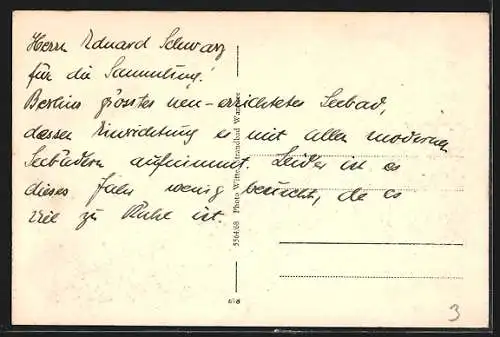 Herrn Eduard Schwarz
für die Sammlung!
Berlins grösstes neu-errichtetes Seebad,
dessen Einrichtung es mit allen modernen
Seebädern aufnimmt. Leider ist es
dieses Jahr wenig besucht, da es
viel zu kühl ist.
5564/68 Photo Witte, Strandbad Wannsee
3